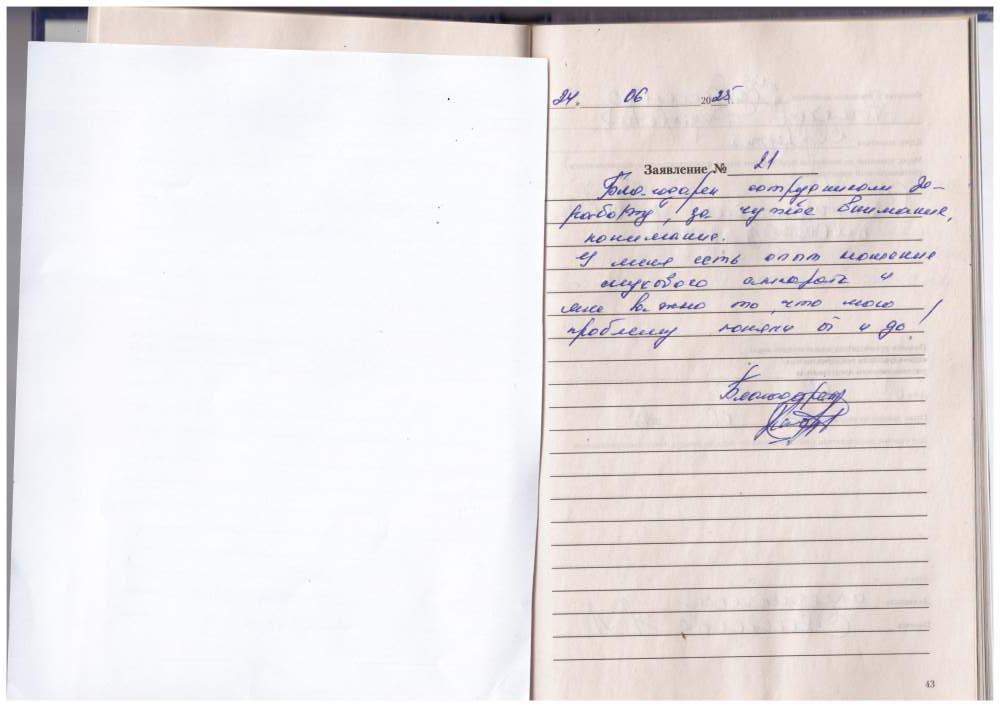 24. 06 2025.
Заявление № 21
Благодарен сотрудникам за
работу, за чуткое внимание,
понимание.
У меня есть опыт ношение
слухового аппарата и
мне важно то, что мою
проблему поняли от и до!
Благодарю
43